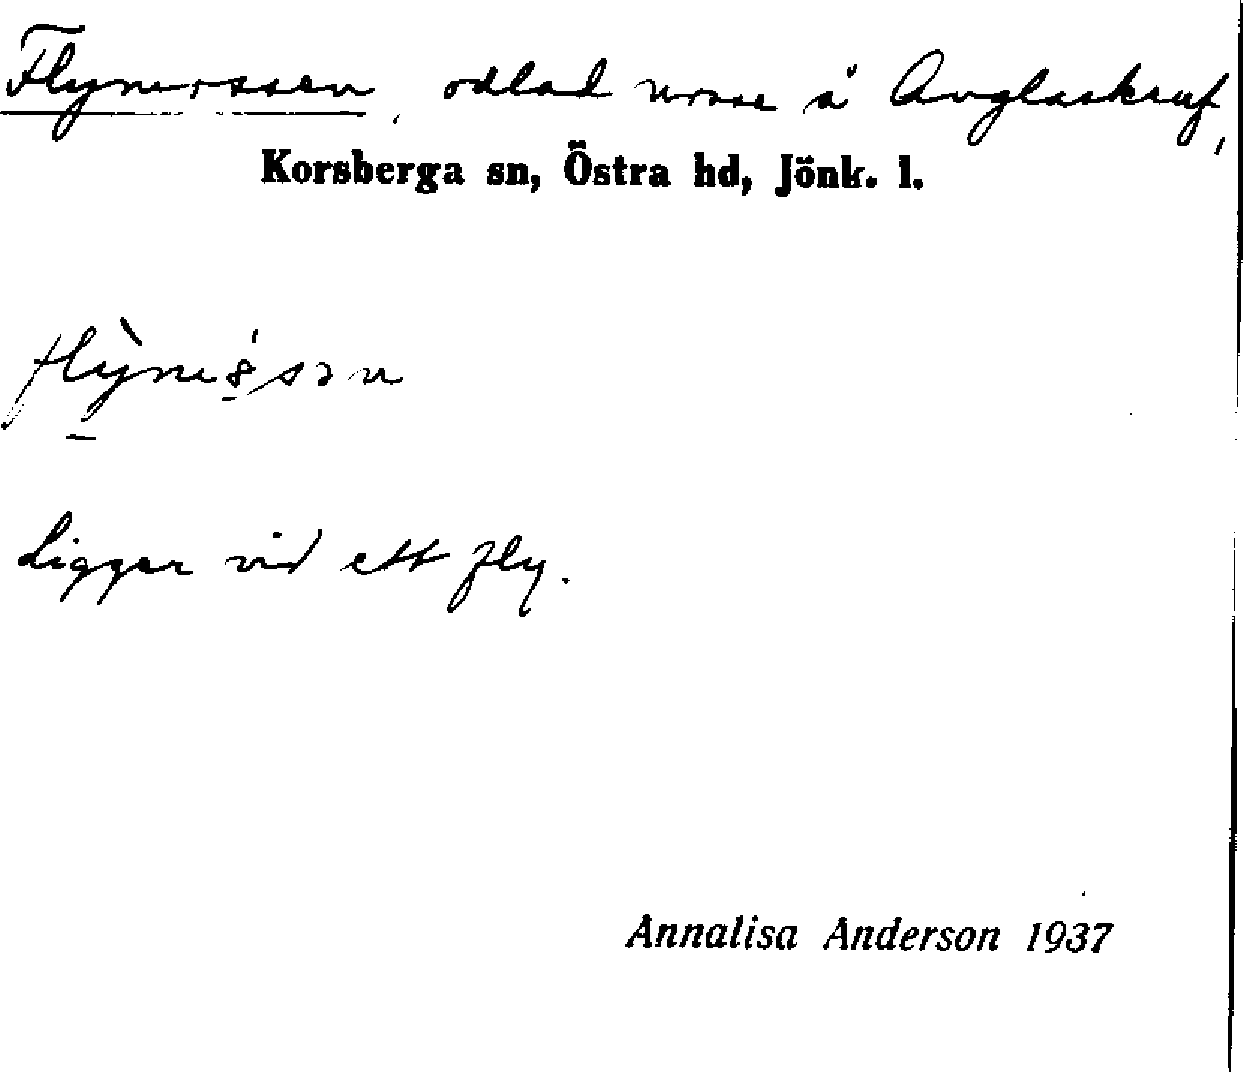 Flymossen, odlad mosse å Anglaskruf,
Korsberga sn, Östra hd, Jönk. l.
Ligger vid ett fly.
Annalisa Anderson 1937